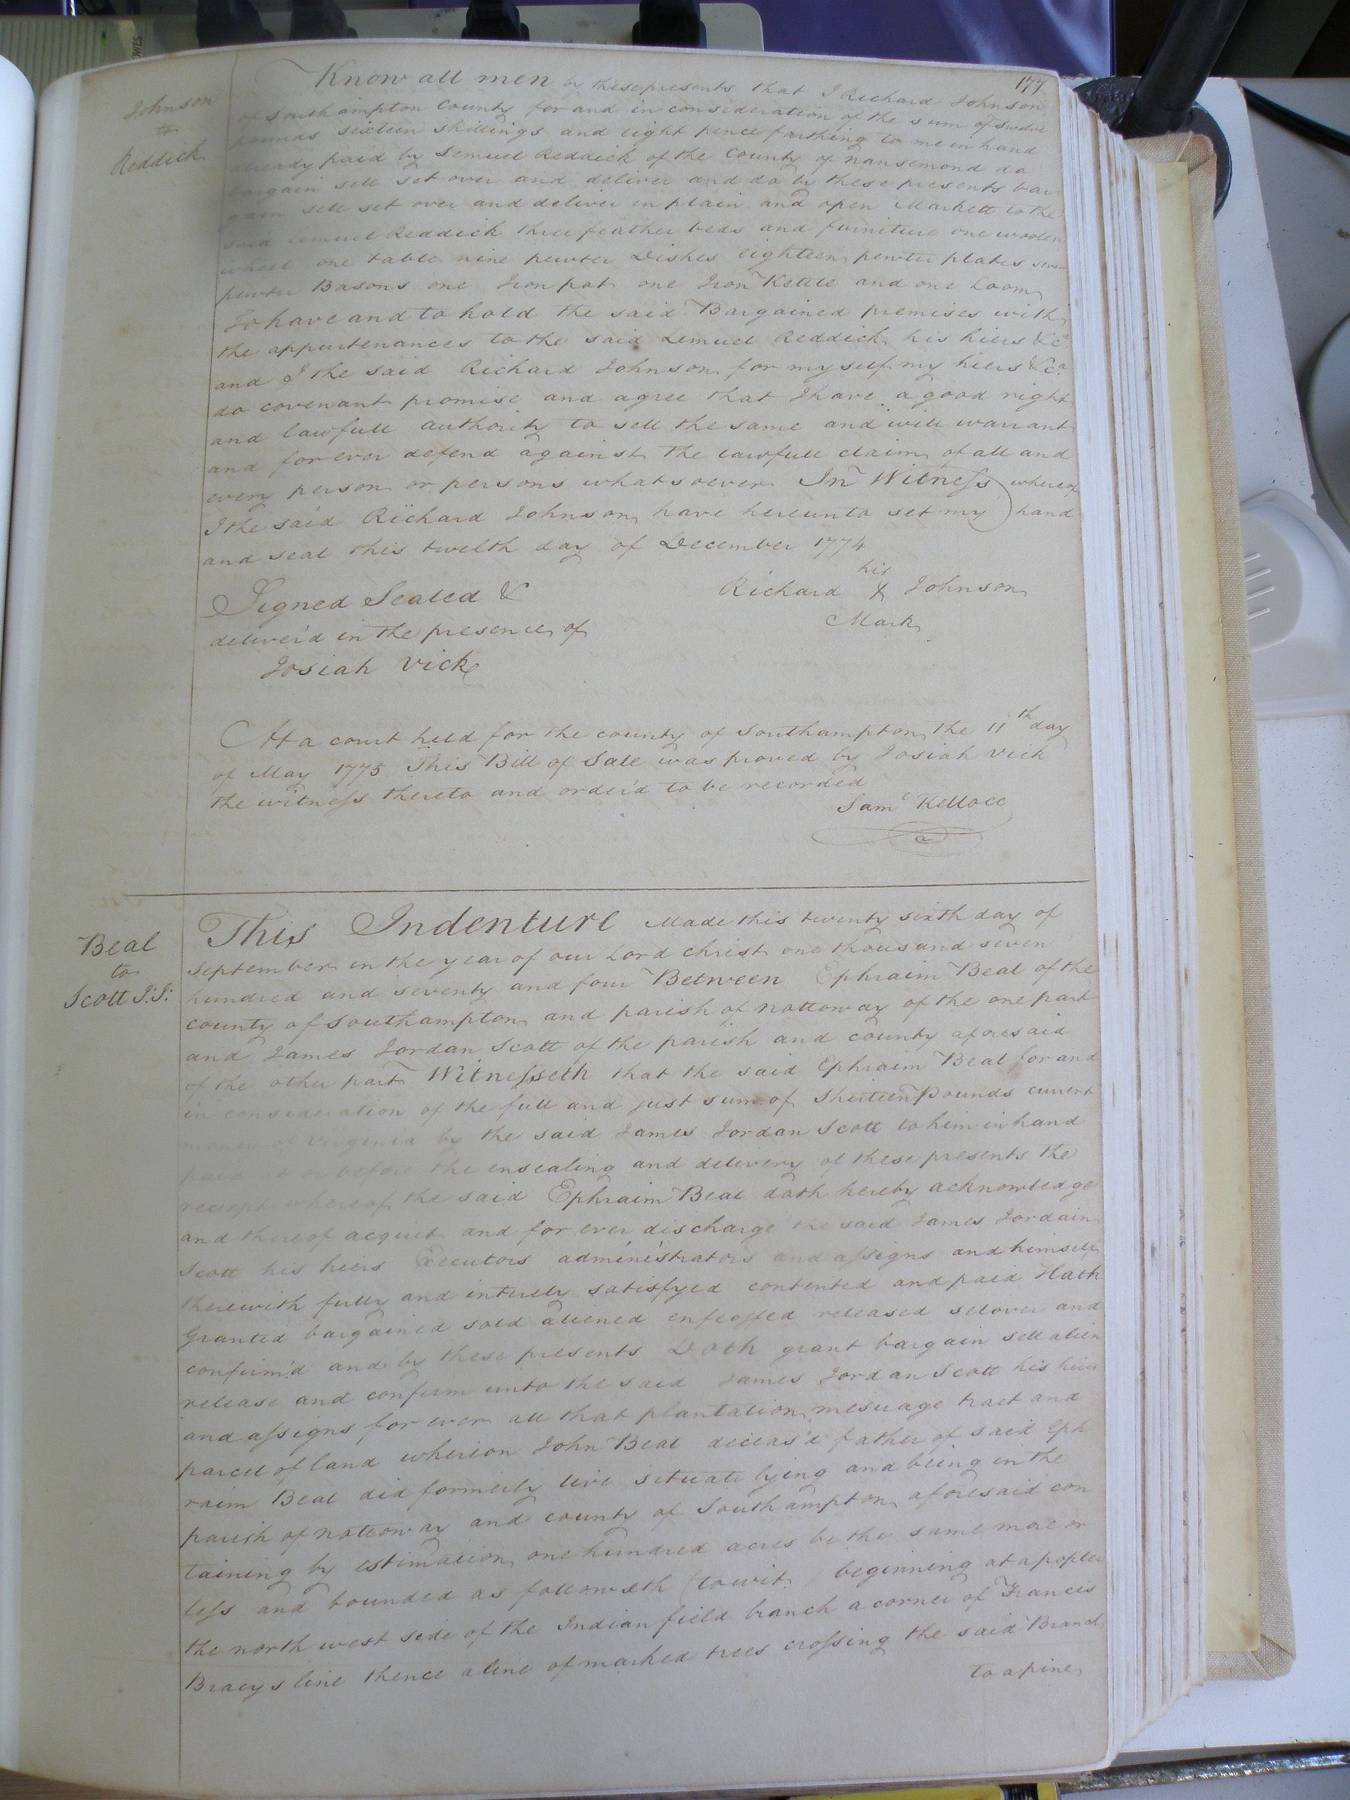 177
Johnson
to
Reddick
Know all men by these presents that I Richard Johnson
of Southampton County for and in consideration of the sum of twelve
pounds sixteen shillings and eight pence farthing to me in hand
already paid by Lemuel Reddick of the County of nansemond do
bargain sell set over and deliver and do by these presents bar
gain sell set over and deliver in plain and open Markett to the
said Lemuel Reddick three feather beds and furniture one woolen
wheel one table nine pewter Dishes eighteen pewter plates
pewter Basons one Iron pot one Iron Kettle and one Loom
To have and to hold the said Bargained premises with
the appurtenances to the said Lemuel Reddick his hiers &ca
and I the said Richard Johnson for my self my hiers &ca
do covenant promise and agree that I have a good right
and lawfull authority to sell the same and will warrant
and for ever defend against the lawfull claim of all and
every person or persons whatsoever In Witness whereof
I the said Richard Johnson have hereunto set my hand
and seal this twelth day of December 1774
Signed Sealed &
deliver'd in the presence of
Josiah Vick
his
Richard X Johnson
Mark
At a court held for the county of Southampton the 11th day
of May 1775 This Bill of Sale was proved by Josiah Vick
the witness thereto and order'd to be recorded
Saml Kelloce
Beal
to
Scott J:J:
This Indenture Made this twenty sixth day of
September in the year of our Lord christ one thousand seven
hundred and seventy and four Between Ephraim Beal of the
county of Southampton and parish of nottoway of the one part
and James Jordan Scott of the parish and county aforesaid
of the other part Witnesseth that the said Ephraim Beal for and
in consideration of the full and just sum of Thirteen Pounds current
money of Virginia by the said James Jordan Scott to him in hand
paid at or before the ensealing and delivery of these presents the
receipt whereof the said Ephraim Beal doth hereby acknowledge
and thereof acquit and for ever discharge the said James Jordain
Scott his hiers Executors administrators and assigns and himself
therewith fully and intirely satisfyed contented and paid Hath
Granted bargained sold aliened enfeoffed released setover and
confirm'd and by these presents Doth grant bargain sell alien
release and confirm unto the said James Jordan Scott his hiers
and assigns for ever all that plantation mesuage tract and
parcel of land wherion John Beal deceas'd father of said Eph
raim Beal did formerly live situate lying and being in the
parish of nottoway and county of Southampton aforesaid con
taining by estimation one hundred acres be the same more or
less and bounded as followeth (towit) beginning at a popler
the north west side of the Indian field branch a corner of Francis
Bracy s line thence a line of marked trees crossing the said Branch
to a pine